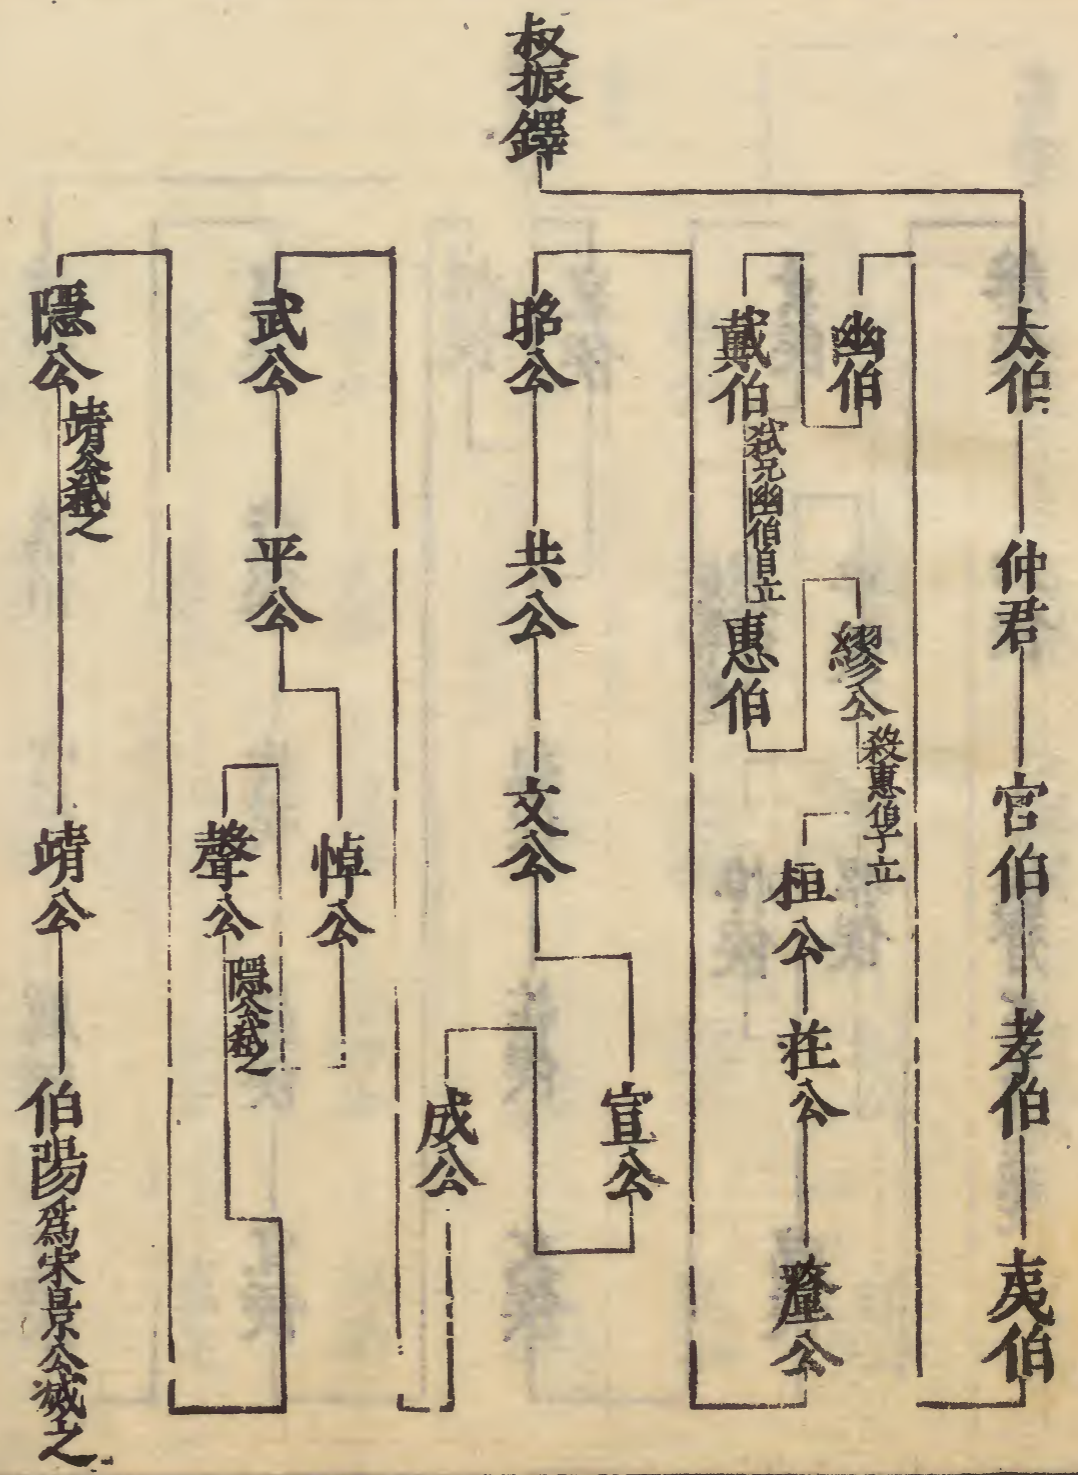 叔振鐸
太伯
仲君
宮伯
孝伯
夷伯
幽伯
戴伯
弒兄幽伯自立
惠伯
繆公
殺惠伯子立
桓公
莊公
釐公
昭公
共公
文公
宣公
成公
武公
平公
悼公
聲公
隱公弒之
隱公
靖公弒之
靖公
伯陽
爲宋景公滅之